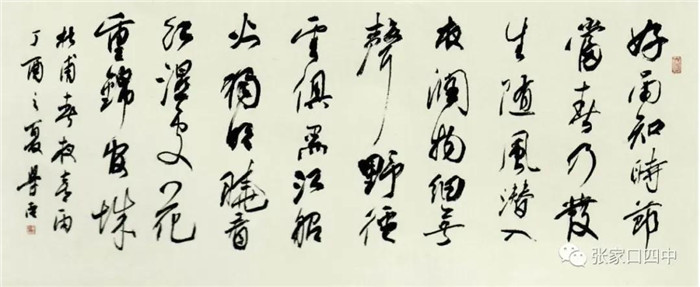 好雨知時節
當春乃發
生隨風潛入
夜潤物細無
聲野徑
雲俱黑江船
火獨明曉看
紅濕處花
重錦官城
杜甫春夜喜雨
丁酉之夏
张家口四中